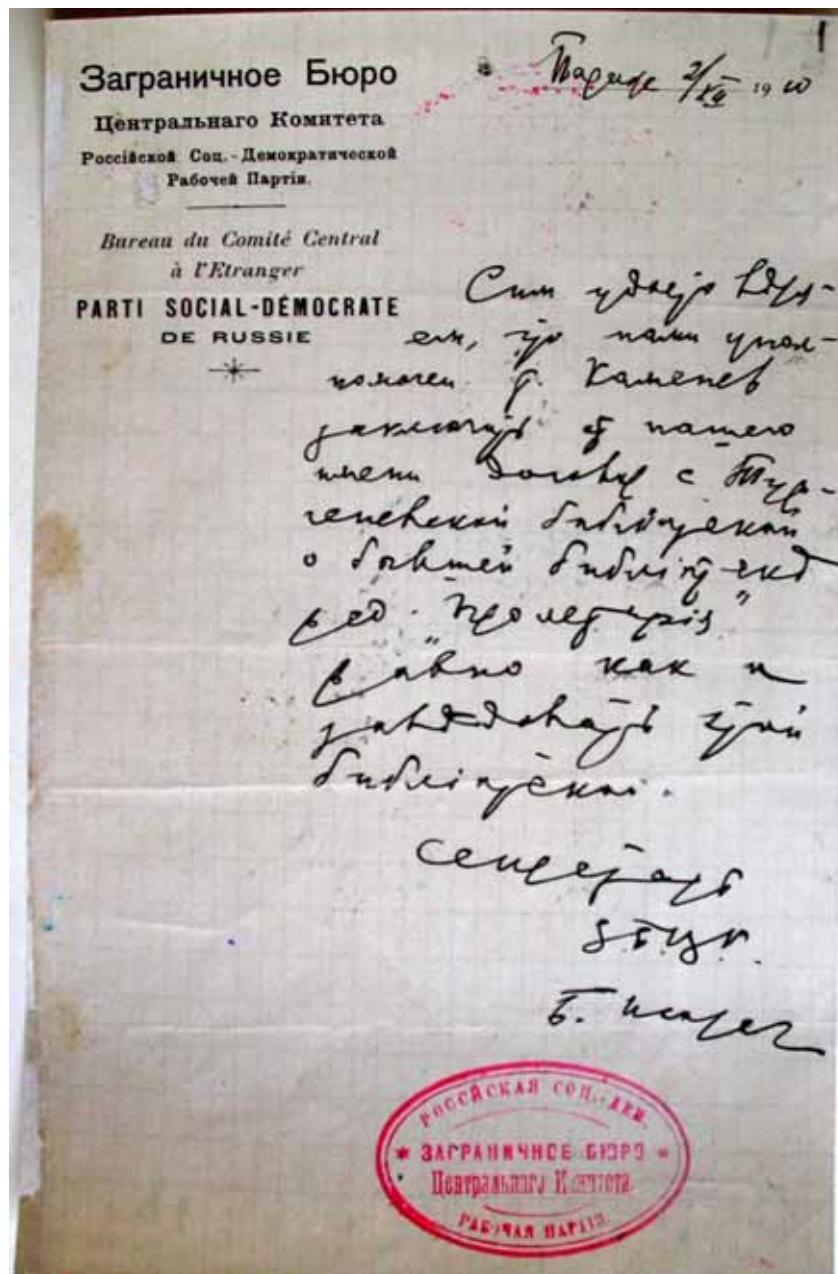 Заграничное Бюро
Центральнаго Комитета
Россійской Соц.-Демократической
Рабочей Партіи.
Bureau du Comité Central
à l'Etranger
PARTI SOCIAL-DÉMOCRATE
DE RUSSIE
Париж 2/XII 1910
Сим удостовѣря-
ем, что нами упол-
номочен т. Каменев
заключить от нашего
имени договор с Тур-
геневской библіотекой
о бывшей библіотекѣ
ред. "Пролетарія"
равно как и
завѣдовать этой
библіотекой.
Секретарь
З.Б.Ц.К.
Б.
РОССІЙСКАЯ СОЦ.-ДЕМ.
ЗАГРАНИЧНОЕ БЮРО
Центральнаго Комитета
РАБОЧАЯ ПАРТІЯ.